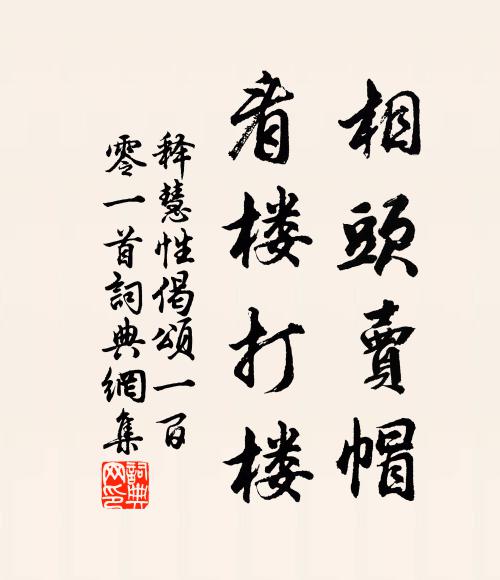 相頭賣帽
看楼打楼
释慧性偈頌一百
零一首詞典網集
詞典网印